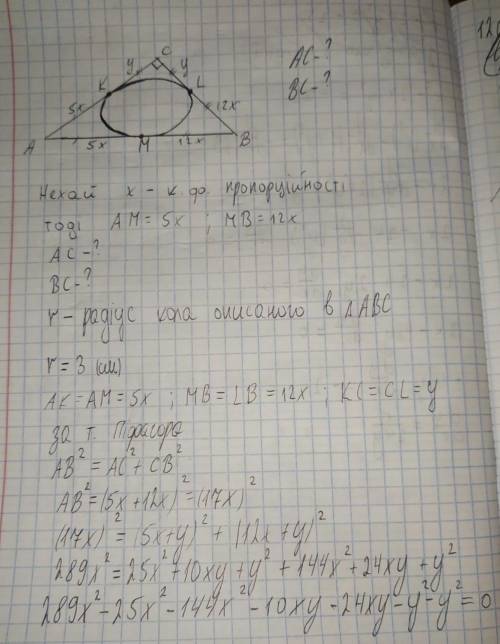 C
y
y
K
L
5x
12x
A
5x
M
12x
B
AC-?
BC-?
Нехай x - к. ф. пропорційності
тоді AM = 5x ; MB = 12x
AC-?
BC-?
r - радіус кола описаного в ΔABC
r = 3 (см)
AK = AM = 5x ; MB = LB = 12x ; KC = CL = y
за т. Піфагора
AB² = AC² + CB²
AB² = (5x + 12x)² = (17x)²
(17x)² = (5x+y)² + (12x+y)²
289x² = 25x² + 10xy + y² + 144x² + 24xy + y²
289x² - 25x² - 144x² - 10xy - 24xy - y² - y² = 0